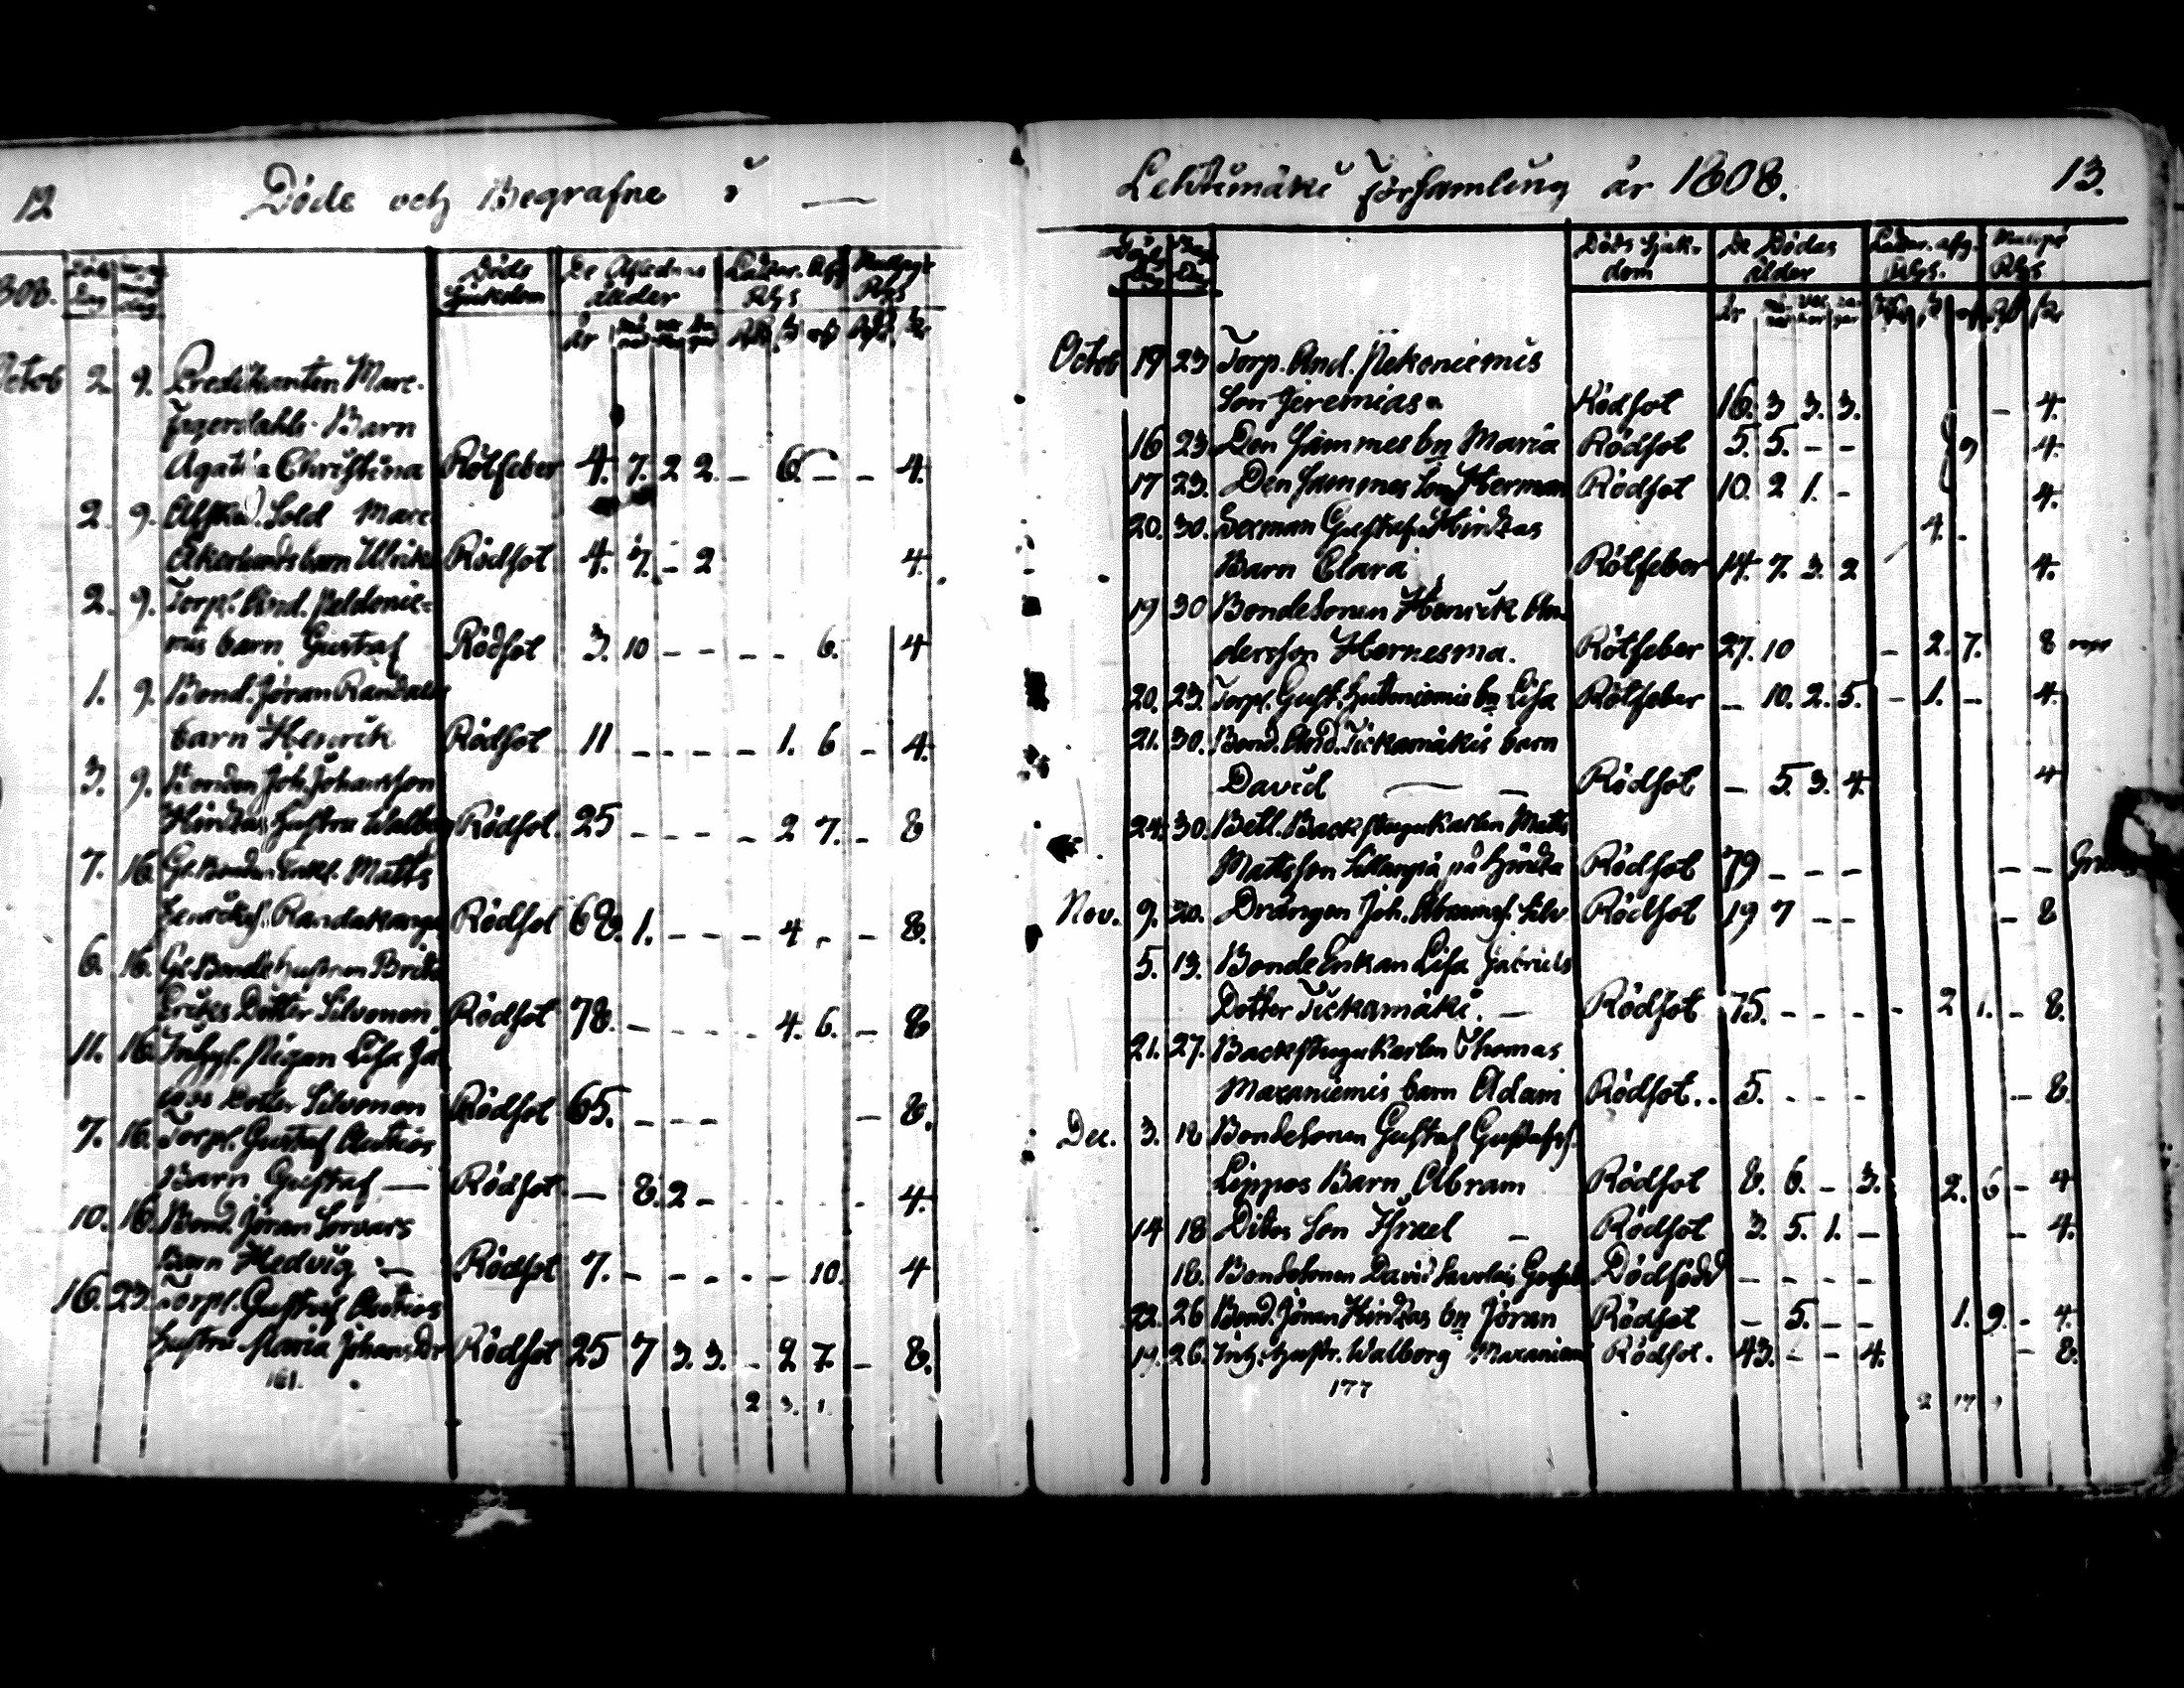 12 Döde och Begrafne i —
Döds dag
Döds Sjukdom De Aflednas ålder
år
Octob 2. 9. Predikanten Marc.
Fagerdahls Barn
Agata Christina Rötfeber 4. 7. 2 2. – 6. – – 4.
2. 9. Afsked. Sold Marc
Åkerlunds barn Ulrika Rödsot 4. 7. – 2 4.
2. 9. Torp. And. Peldonie-
mis barn Gustaf Rödsot 3. 10 – – – – 6. 4
1. 9. Bond. Jöran Randalas
barn Henrik Rödsot 11 – – – – 1. 6 – 4.
3. 9. Bonden Joh. Johansson
Hindas hustru Walborg Rödsot. 25 – – – – 2 7. – 8
7. 16. Gl. Bonden Matts
Henriksf. Randakangas Rödsot 68. 1. – – – 4 – – 8.
6. 16. Gl. Bondehustrun Brita
Eriks Dotter Silvonen Rödsot 78. – – – – 4. 6. – 8
11. 16. Inhys. Pigan Lisa
Dotter Silvonen Rödsot 65. – – – – 8.
7. 16. Torp. Gustaf Autios
Barn Gustaf — Rödsot – 8. 2 – – – – – 4.
10. 16. Bond. Jöran Sorvars
Barn Hedvig — Rödsot 7. – – – – – 10. 4
16. 23. Torp. Gustaf Autios
hustru Maria Johans Dr Rödsot 25 7 3. 3. – 2 7. – 8.
161.
2 3. 1.
Lehtimäki Församling år 1808. 13.
Döds Sjuk-
dom De Dödas
ålder
år
Octob 19 23 Torp. And. Pekoniemis
Son Jeremias Rödsot 16. 3 3. 3. – 4.
16 23. Den sammes bn Maria Rödsot 5. 5. – – 9 4.
17 23. Den sammes Son Herman Rödsot 10. 2 1. – 4.
20. 30. Sexman Gustaf Hindas 4. –
Barn Clara Rötfeber 14. 7. 3. 2 4.
19 30 Bondesonen Henrik An-
dersson Hernesma. Rötfeber 27. 10 – 2. 7. 8
20. 23. Torp. Gust. Huttoniemis bn Lisa Rötfeber – 10. 2. 5. – 1. – 4.
21. 30. Bond. And. Tickamäkis barn
David — — Rödsot – 5. 3. 4. 4
24. 30. Betl. Backstugukarlen Matts
Mattsson på Hinda Rödsot 79 – – – – –
Nov. 9. 20. Drängen Joh. Abramsf. Silv Rödsot 19 7 – – – 8
5. 13. Bonde Enkan Lisa Gabriels
Dotter Tickamäki. — Rödsot 75. – – – – 2 1. – 8.
21. 27. Backstugukarlen Thomas
Maxaniemis barn Adam Rödsot. 5. – – – – 8.
Dec. 3. 18 Bondesonen Gustaf Gustafsf.
Lippos Barn Abram Rödsot 8. 6. – 3. 2. 6 – 4
14 18 Ditos Son Israel – Rödsot 3. 5. 1. – – 4.
18. Bondesonen David Savolais Dödfödd – – – –
22. 26 Bond. Jöran Hindas bn Jöran Rödsot – 5. – – 1. 9. – 4.
19. 26. Inh. hustr. Walborg Maxaniemi Rödsot. 43. – – 4. – 8.
177
2 17